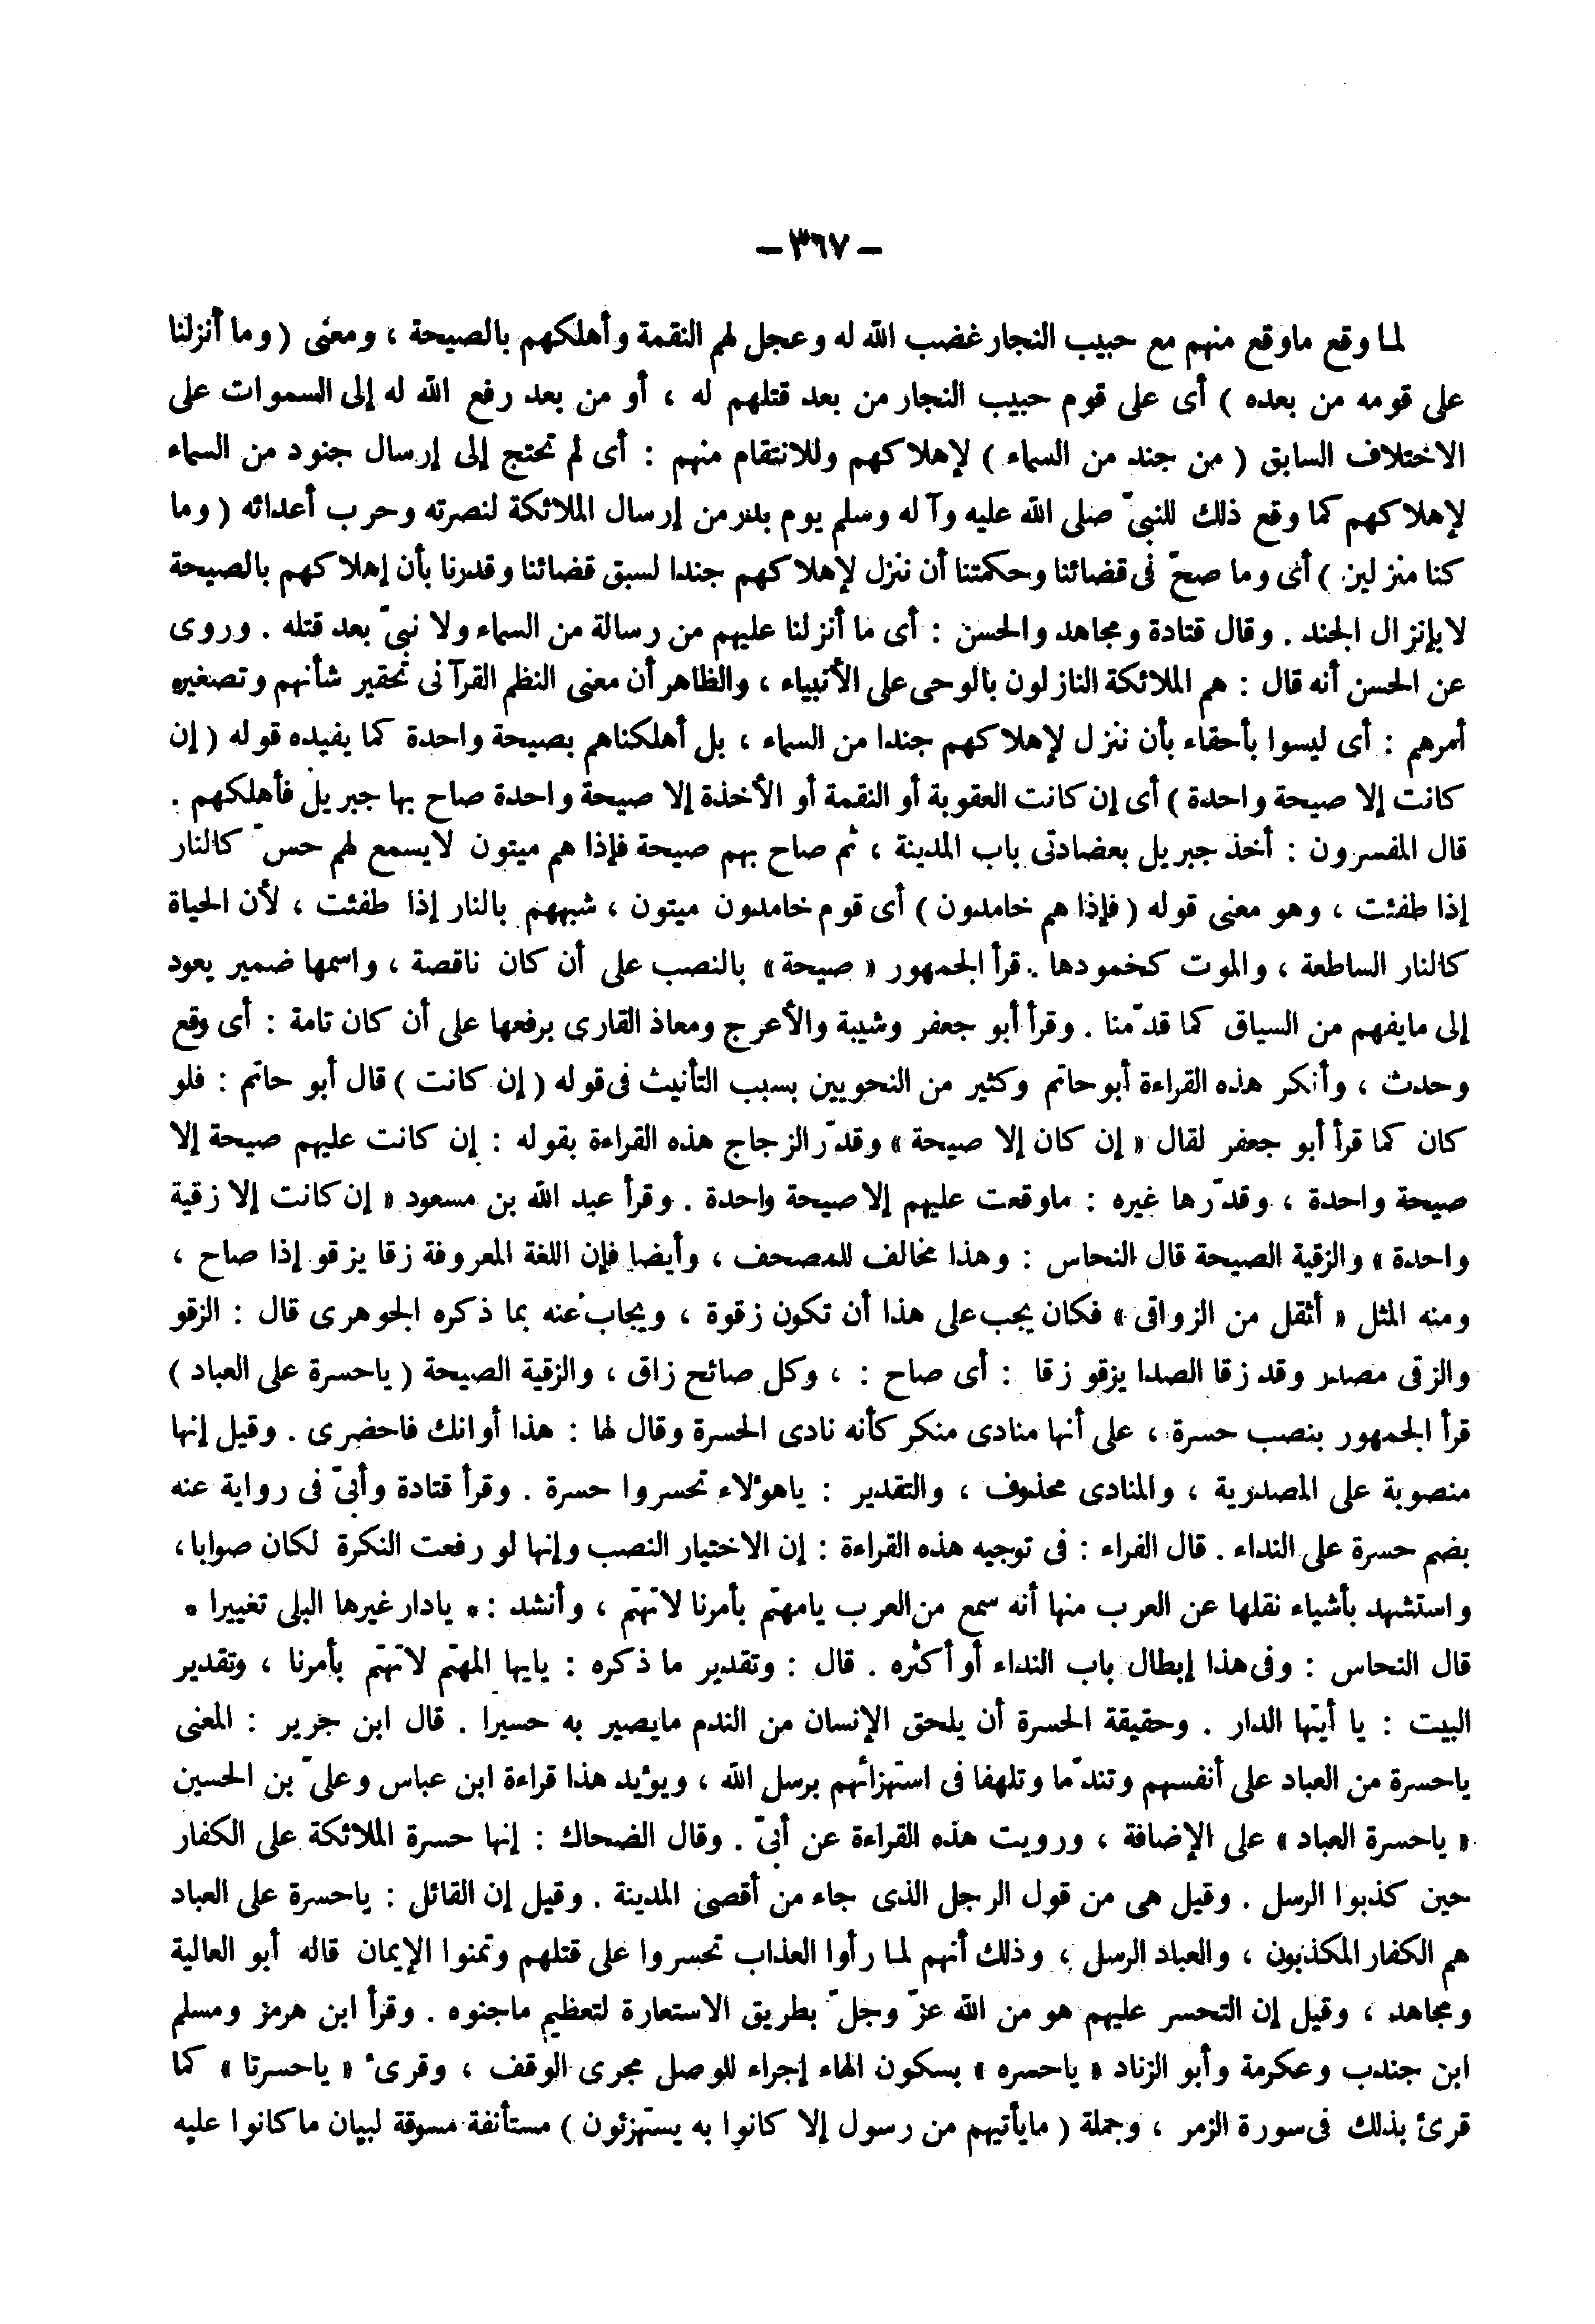 – ٣٦٧ –
لما وقع ماوقع منهم مع حبيب النجار غضب الله له وعجل لهم النقمة وأهلكهم بالصيحة ، ومعنى ( وما أنزلنا
على قومه من بعده ) أى على قوم حبيب النجار من بعد قتلهم له ، أو من بعد رفع الله له إلى السموات على
الاختلاف السابق ( من جند من السماء ) لإهلاكهم وللانتقام منهم : أى لم تحتج إلى إرسال جنود من السماء
لإهلاكهم كما وقع ذلك للنبىّ صلى الله عليه وآله وسلم يوم بدر من إرسال الملائكة لنصرته وحرب أعدائه ( وما
كنا منزلين ) أى وما صحّ فى قضائنا وحكمتنا أن ننزل لإهلاكهم جندا لسبق قضائنا وقدرنا بأن إهلاكهم بالصيحة
لا بإنزال الجند . وقال قتادة ومجاهد والحسن : أى ما أنزلنا عليهم من رسالة من السماء ولا نبىّ بعد قتله . وروى
عن الحسن أنه قال : هم الملائكة النازلون بالوحى على الأنبياء ، والظاهر أن معنى النظم القرآنى تحقير شأنهم وتصغير
أمرهم : أى ليسوا بأحقاء بأن ننزل لإهلاكهم جندا من السماء ، بل أهلكناهم بصيحة واحدة كما يفيده قوله ( إن
كانت إلا صيحة واحدة ) أى إن كانت العقوبة أو النقمة أو الأخذة إلا صيحة واحدة صاح بها جبريل فأهلكهم .
قال المفسرون : أخذ جبريل بعضادتى باب المدينة ، ثم صاح بهم صيحة فإذا هم ميتون لايسمع لهم حسّ كالنار
إذا طفئت ، وهو معنى قوله ( فإذا هم خامدون ) أى قوم خامدون ميتون ، شبههم بالنار إذا طفئت ، لأن الحياة
كالنار الساطعة ، والموت كخمودها . قرأ الجمهور « صيحة » بالنصب على أن كان ناقصة ، واسمها ضمير يعود
إلى مايفهم من السياق كما قدّمنا . وقرأ أبو جعفر وشيبة والأعرج ومعاذ القارى برفعها على أن كان تامة : أى وقع
وحدث ، وأنكر هذه القراءة أبو حاتم وكثير من النحويين بسبب التأنيث فى قوله ( إن كانت ) قال أبو حاتم : فلو
كان كما قرأ أبو جعفر لقال « إن كان إلا صيحة » وقدّر الزجاج هذه القراءة بقوله : إن كانت عليهم صيحة إلا
صيحة واحدة ، وقدّرها غيره : ماوقعت عليهم إلا صيحة واحدة . وقرأ عبد الله بن مسعود « إن كانت إلا زقية
واحدة » والزقية الصيحة قال النحاس : وهذا مخالف للمصحف ، وأيضا فإن اللغة المعروفة زقا يزقو إذا صاح ،
ومنه المثل « أثقل من الزواقى » فكان يجب على هذا أن تكون زقوة ، ويجاب عنه بما ذكره الجوهرى قال : الزقو
والزقى مصدر وقد زقا الصدا يزقو زقا : أى صاح : ، وكل صائح زاق ، والزقية الصيحة ( ياحسرة على العباد )
قرأ الجمهور بنصب حسرة ، على أنها منادى منكر كأنه نادى الحسرة وقال لها : هذا أوانك فاحضرى . وقيل إنها
منصوبة على المصدرية ، والمنادى محذوف ، والتقدير : ياهؤلاء تحسروا حسرة . وقرأ قتادة وأبىّ فى رواية عنه
بضم حسرة على النداء . قال الفراء : فى توجيه هذه القراءة : إن الاختيار النصب وإنها لو رفعت النكرة لكان صوابا ،
واستشهد بأشياء نقلها عن العرب منها أنه سمع من العرب يامهتم بأمرنا لاتهتم ، وأنشد : * يادار غيرها البلى تغييرا *
قال النحاس : وفى هذا إبطال باب النداء أو أكثره . قال : وتقدير ما ذكره : يايها المهتم لاتهتم بأمرنا ، وتقدير
البيت : يا أيتها الدار . وحقيقة الحسرة أن يلحق الإنسان من الندم مايصير به حسيرا . قال ابن جرير : المعنى
ياحسرة من العباد على أنفسهم وتندّما وتلهفا فى استهزائهم برسل الله ، ويؤيد هذا قراءة ابن عباس وعلىّ بن الحسين
« ياحسرة العباد » على الإضافة ، ورويت هذه القراءة عن أبىّ . وقال الضحاك : إنها حسرة الملائكة على الكفار
حين كذبوا الرسل . وقيل هى من قول الرجل الذى جاء من أقصى المدينة . وقيل إن القائل : ياحسرة على العباد
هم الكفار المكذبون ، والعباد الرسل ، وذلك أنهم لما رأوا العذاب تحسروا على قتلهم وتمنوا الإيمان قاله أبو العالية
ومجاهد ، وقيل إن التحسر عليهم هو من الله عزّ وجلّ بطريق الاستعارة لتعظيم ماجنوه . وقرأ ابن هرمز ومسلم
ابن جندب وعكرمة وأبو الزناد « ياحسره » بسكون الهاء إجراء للوصل مجرى الوقف ، وقرئ « ياحسرتا » كما
قرئ بذلك فى سورة الزمر ، وجملة ( مايأتيهم من رسول إلا كانوا به يستهزئون ) مستأنفة مسوقة لبيان ما كانوا عليه